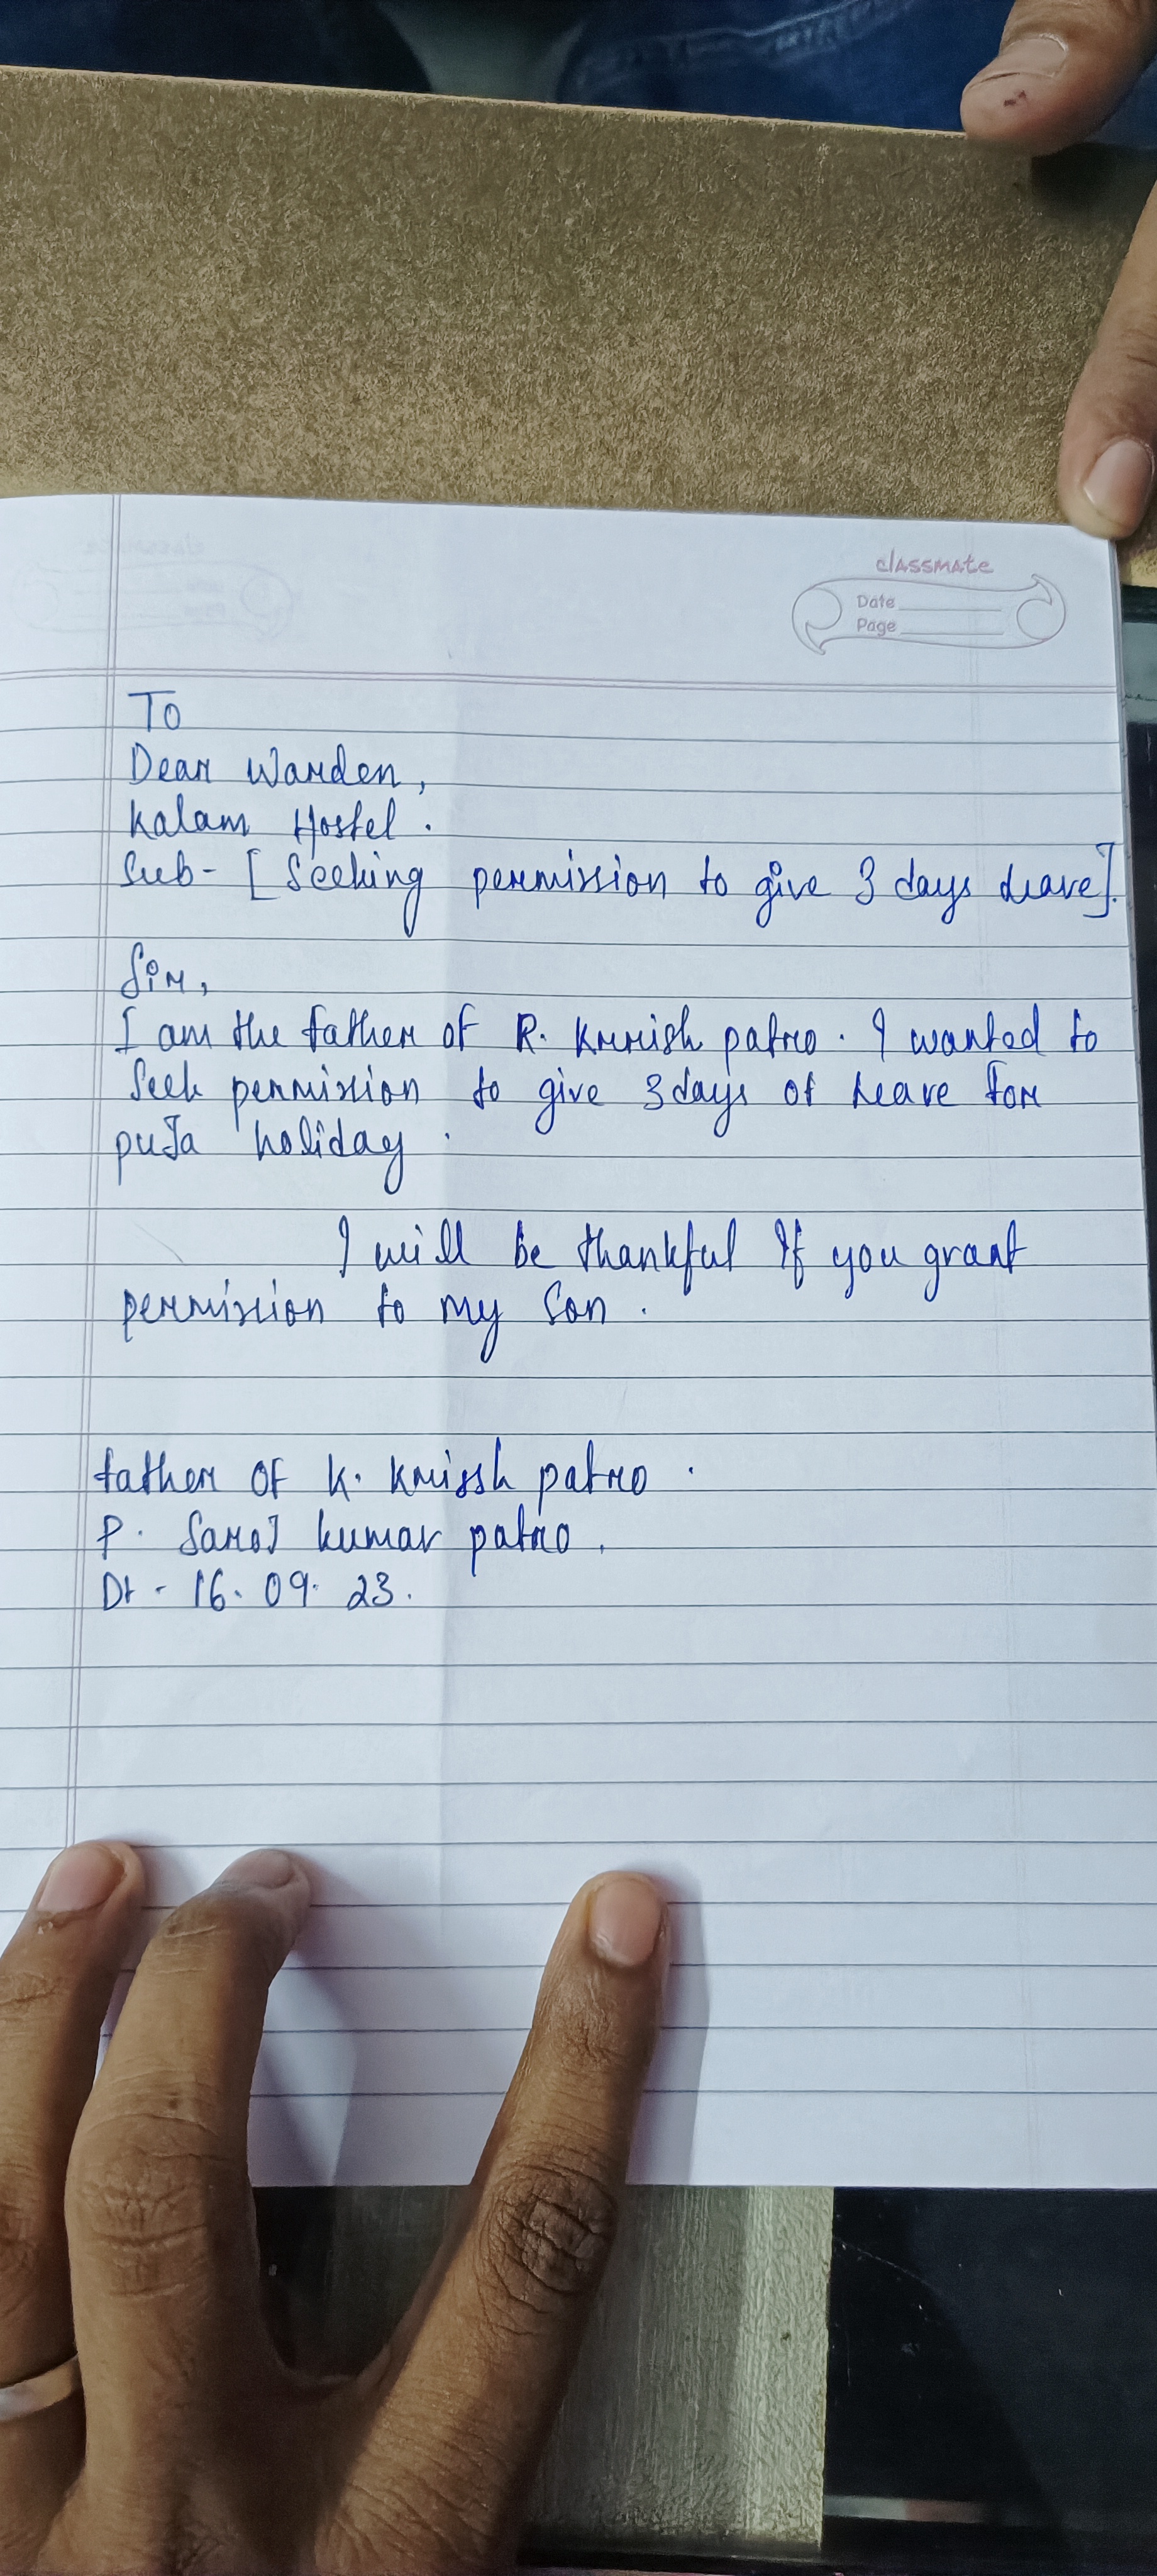 classmate
Date
Page
To
Dear Warden,
Kalam Hostel.
Sub- [ Seeking permission to give 3 days leave].
Sir,
I am the father of R. Krrish patro. I wanted to
Seek permission to give 3 days of leave for
puja holiday.
I will be thankful If you grant
permission to my Son.
father OF K. Krissh patro.
P. Saroj kumar patro.
Dt - 16. 09. 23.